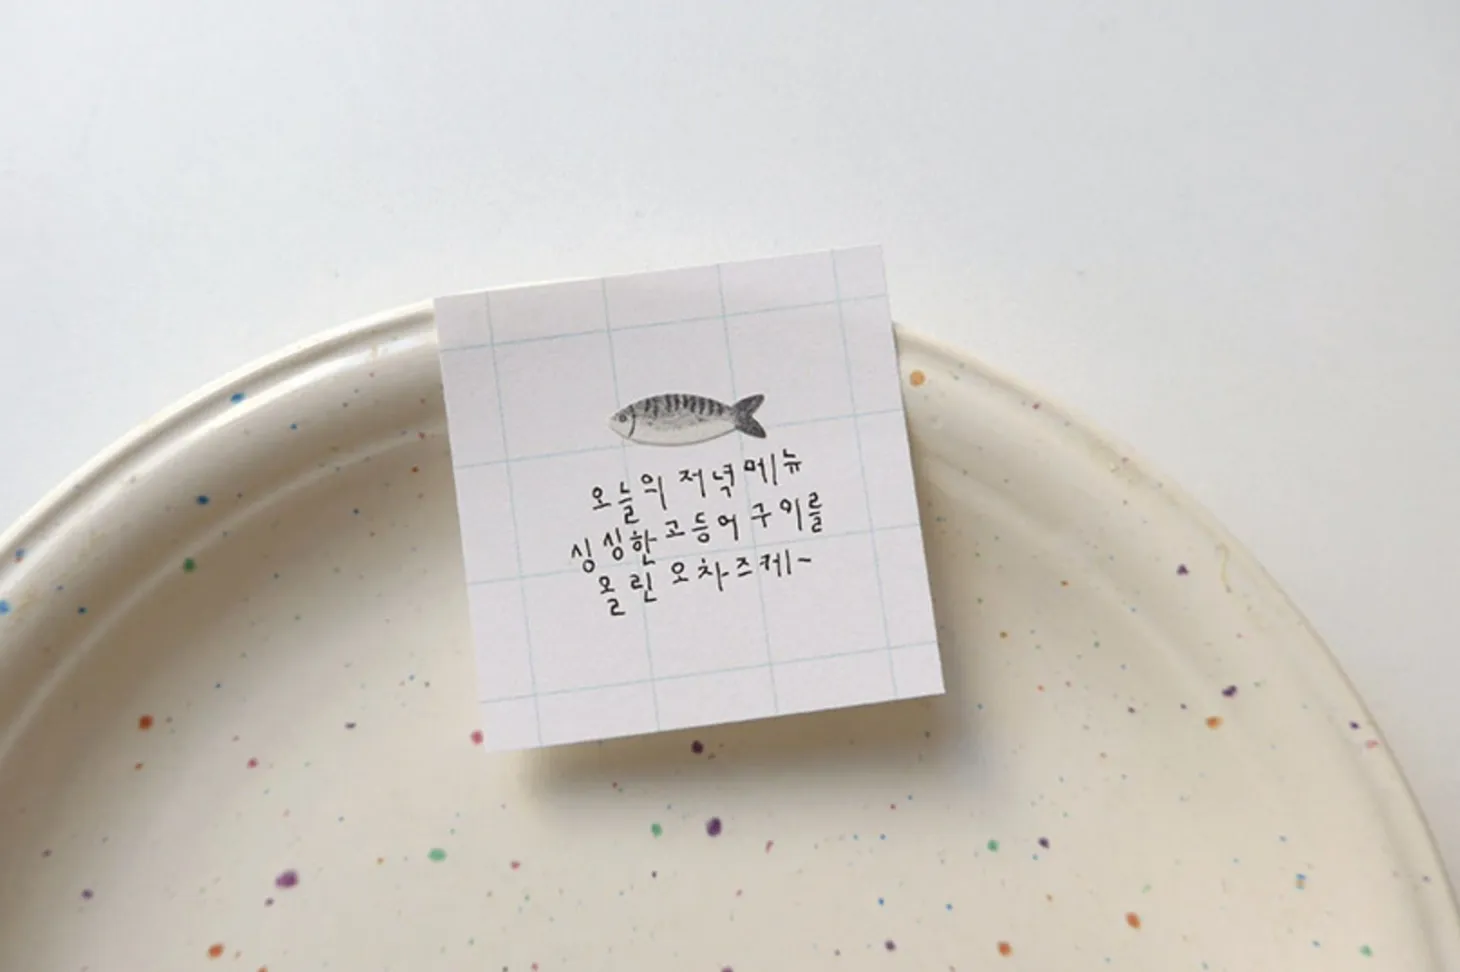 오늘의 저녁메뉴
싱싱한 고등어 구이를
올린 오차즈케~